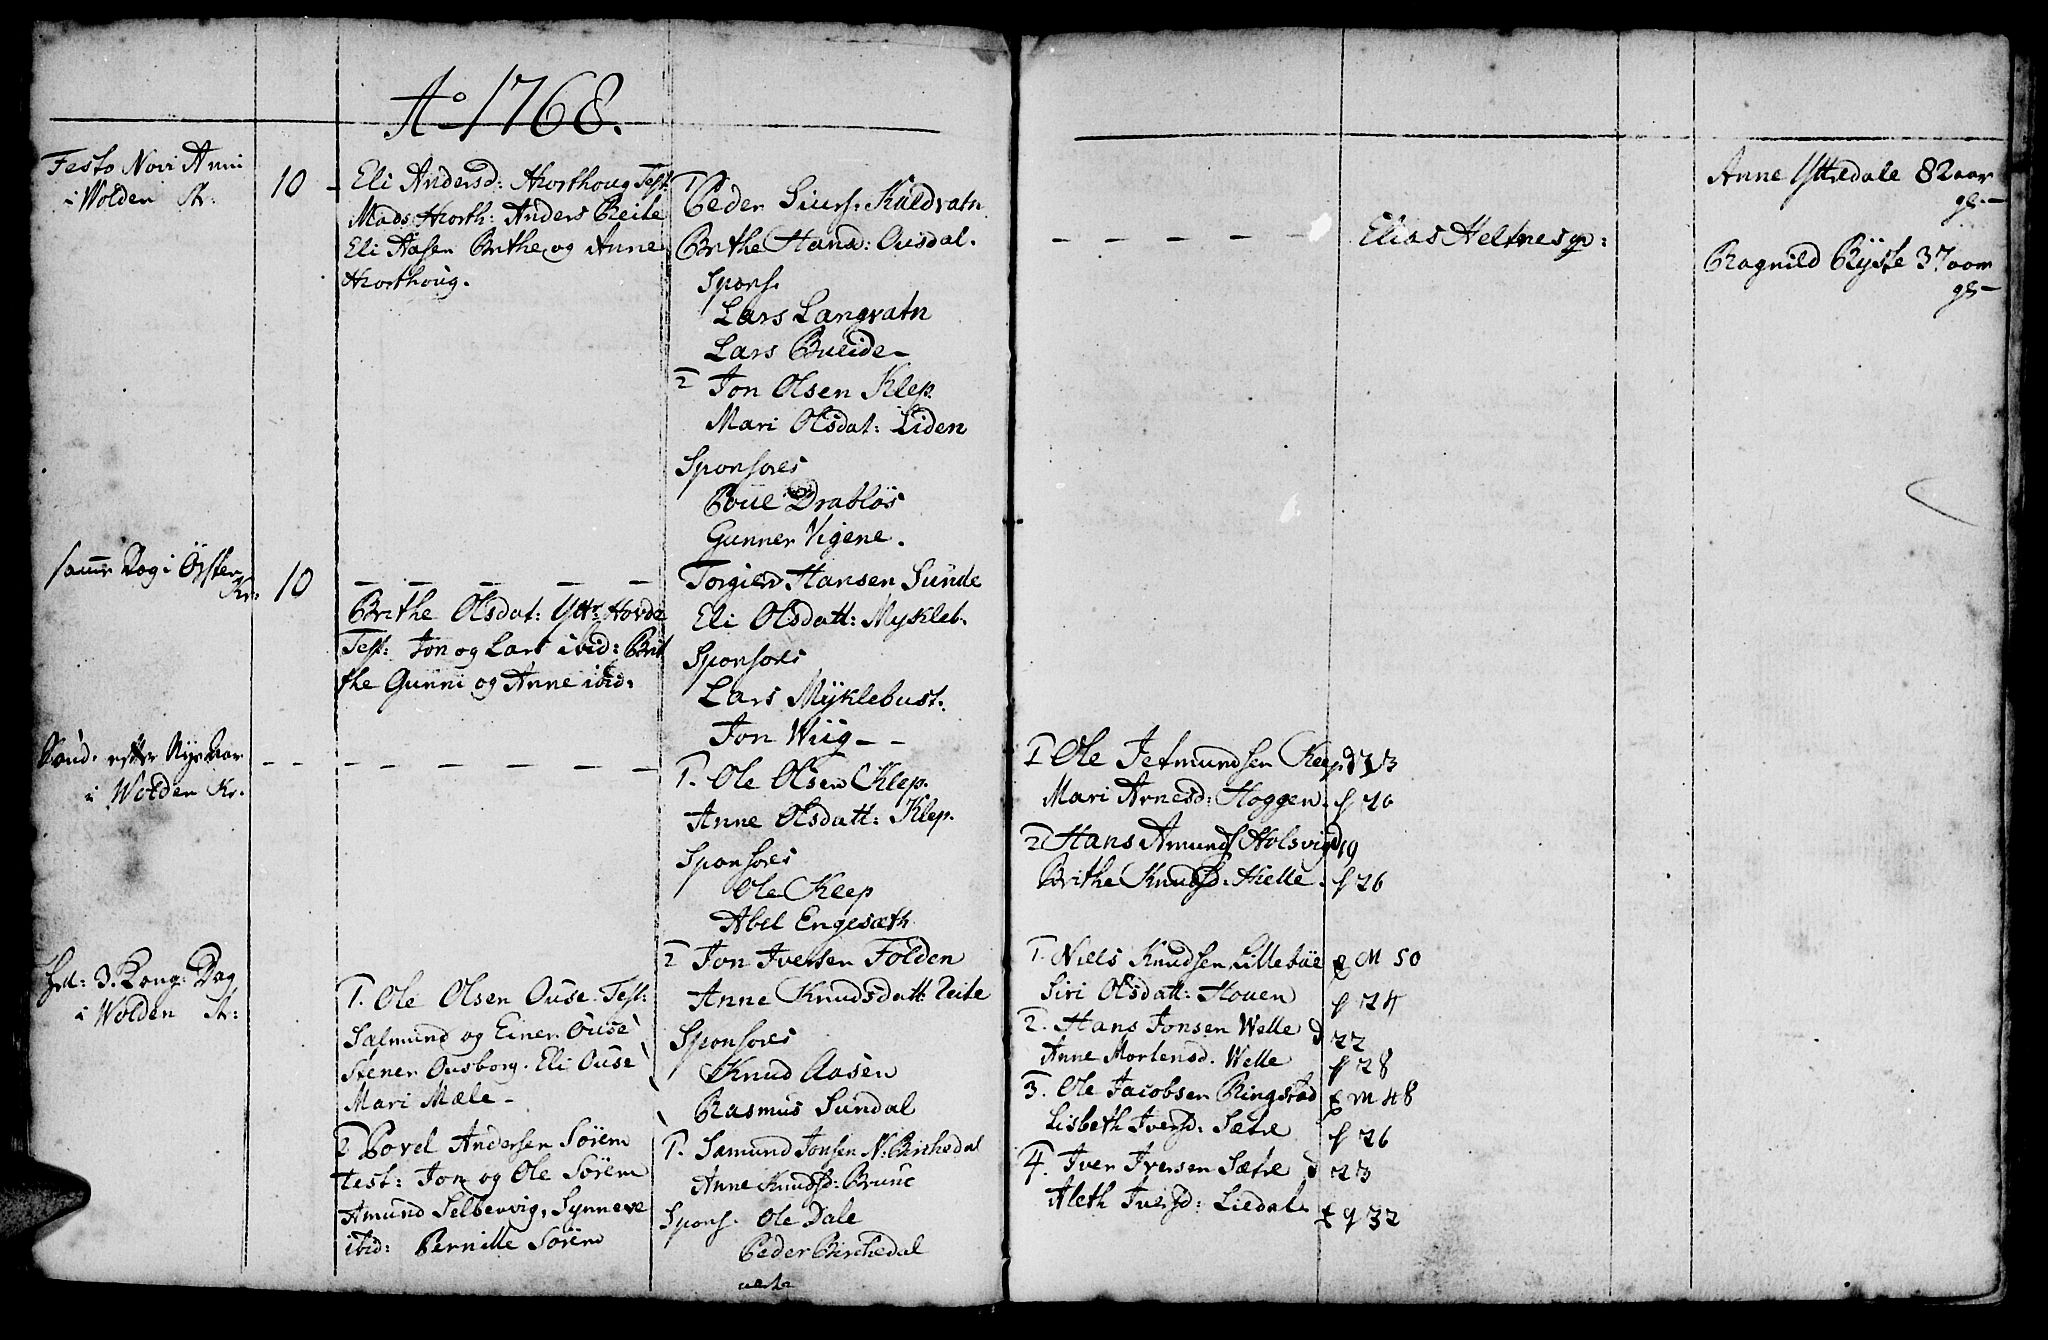 Ao 1768.
Festo Novi Anni
i Wolden K:
10
Eli Andersd: Horthoug Test
Mads Horth: Anders Reite
Eli Aasen Brithe og Anne
Horthoug.
1
Peder Siurs: Kaldvatn
Brithe Hansd: Ousdal.
Spons.
Lars Langvatn
Lars Breide
2 Jon Olsen Klep.
Mari Olsdat: Liden
Sponsores
Poul Drabløs
Gunner Vigene.
samme Dag i Ørsten
Kr: 10
Brithe Olsdat: Yttr Hovde
Test: Jon og Lars ibid: Brit
the Gunni og Anne ibid:
Torgier Hansen Sunde
Eli Olsdatt: Mykleb.
Sponsores
Lars Myklebust.
Jon Wiig
Sønd. efter Nyt Aar
i Wolden Kr.
1. Ole Olsen Klep.
Anne Olsdatt: Klep.
Sponsores
Ole Klep
Abel Engesæth
2 Jon Iversen Folden
Anne Knudsdatt: Reite
Sponsores
Knud Aasen
Rasmus Sundal
Hel: 3 Kong: Dag
i Wolden K:
1. Ole Olsen Ouse. Test:
Salmund og Einer Ouse
Stener Ousborg. Eli Ouse
Mari Mæle
2 Povel Andersen Sørem
test: Jon og Ole Sørem
Amund Selbervig, Synneve
ibid: Pernille Sørem
1. Samund Jonsen N. Birchedal
Anne Knudsd: Brune
Spons. Ole Dale
Peder Birchedal
Elias Heltnes
Anne Yttredale 82 aar
Ragnild Ryste 37 aar
1 Ole Jetmundsen Klep
Mari Arnesd: Hoggen. f 26
2 Hans Amunds Holsvig 19
Brithe Knudsd. Hielle. f 26
1. Niels Knudsen Lillebøe M 50
Siri Olsdatt: Houen f 24
2. Hans Jonsen Welle d 22
Anne Mortensd. Welle f 28
3. Ole Jacobsen Ringstad M 48
Lisbeth Iversd: Sætre f 26
4. Iver Iversen Sætre d 23
Aleth Iversd: Liedal 32